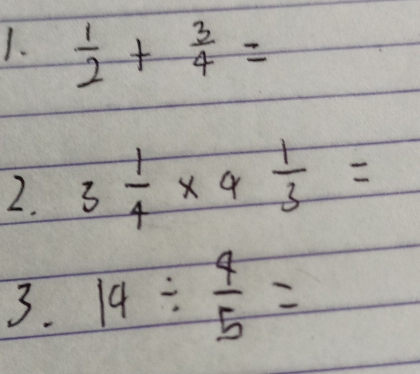 1. 1/2 + 3/4 =
2. 3 1/4 × 4 1/3 =
3. 14 ÷ 4/5 =